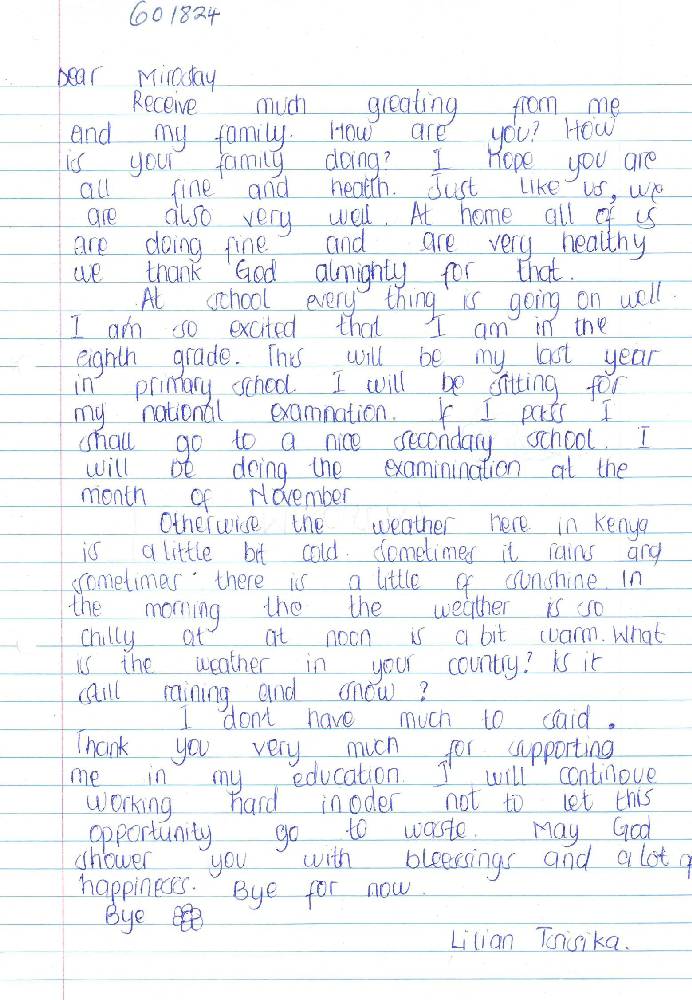 601824
Dear Miroslay
Receive much greating from me
and my family. How are you? How
is your family doing? I Hope you are
all fine and health. Just like us, we
are also very well. At home all of us
are doing fine and are very healthy
we thank God almighty for that.
At school every thing is going on well.
I am so excited that I am in the
eighth grade. This will be my last year
in primary school. I will be sitting for
my national examnation. If I pass I
shall go to a nice secondary school. I
will be doing the examinination at the
month of November
Otherwise the weather here in Kenya
is a little bit cold. Sometimes it rains and
sometimes there is a little of sunshine. In
the morning the the weather is so
chilly at at noon is a bit warm. What
is the weather in your country? Is it
still raining and snow?
I don't have much to said.
Thank you very much for supporting
me in my education. I will continoue
working hard inoder not to let this
opportunity go to waste. May God
shower you with bleessings and a lot of
happiness. Bye for now.
Bye
Lilian Tsisika.